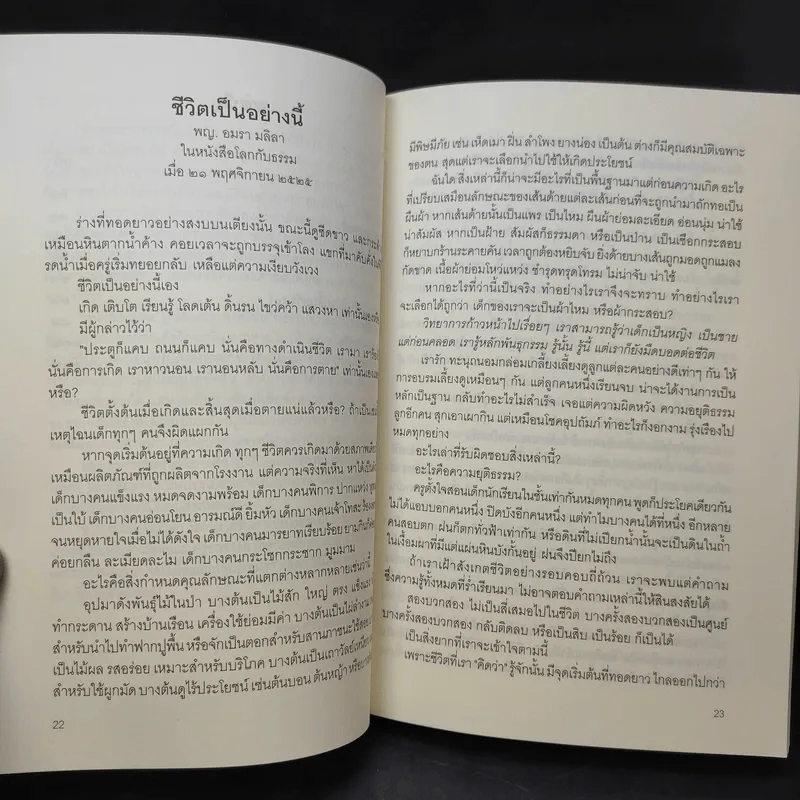 ชีวิตเป็นอย่างนี้
พญ. อมรา มลิลา
ในหนังสือโลกกับธรรม
เมื่อ ๒๑ พฤศจิกายน ๒๕๒๕
ร่างที่ทอดยาวอย่างสงบบนเตียงนั้น ขณะนี้ดูซีดขาว และ
เหมือนหินตากน้ำค้าง คอยเวลาจะถูกบรรจุเข้าโลง แขกที่มาคับคั่ง
รดน้ำเมื่อครู่เริ่มทยอยกลับ เหลือแต่ความเงียบวังเวง
ชีวิตเป็นอย่างนี้เอง
เกิด เติบโต เรียนรู้ โลดเต้น ดิ้นรน ไขว่คว้า แสวงหา เท่านั้นเอง
มีผู้กล่าวไว้ว่า
"ประตูก็แคบ ถนนก็แคบ นั่นคือทางดำเนินชีวิต เรามา
นั่นคือการเกิด เราหาวนอน เรานอนหลับ นั่นคือการตาย" เท่านั้นเอง
หรือ?
ชีวิตตั้งต้นเมื่อเกิดและสิ้นสุดเมื่อตายแน่แล้วหรือ? ถ้าเป็น
เหตุไฉนเด็กทุกๆ คนจึงผิดแผกกัน
หากจุดเริ่มต้นอยู่ที่ความเกิด ทุกๆ ชีวิตควรเกิดมาด้วยสภาพ
เหมือนผลิตภัณฑ์ที่ถูกผลิตจากโรงงาน แต่ความจริงที่เห็น หาได้เป็น
เด็กบางคนแข็งแรง หมดจดงามพร้อม เด็กบางคนพิการ ปากแหว่ง
เป็นใบ้ เด็กบางคนอ่อนโยน อารมณ์ดี ยิ้มหัว เด็กบางคนเจ้าโทสะ
จนหยุดหายใจเมื่อไม่ได้ดังใจ เด็กบางคนมารยาทเรียบร้อย ยามกิน
ค่อยกลืน ละเมียดละไม เด็กบางคนกระโชกกระชาก มูมมาม
อะไรคือสิ่งกำหนดคุณลักษณะที่แตกต่างหลากหลายเช่นว่านี้
อุปมาดังพันธุ์ไม้ในป่า บางต้นเป็นไม้สัก ใหญ่ ตรง แข็งแรง
ทำกระดาน สร้างบ้านเรือน เครื่องใช้ย่อมมีค่า บางต้นเป็นไผ่ลำงาม
สำหรับนำไปทำฟากปูพื้น หรือจักเป็นตอกสำหรับสานภาชนะใช้สอย
เป็นไม้ผล รสอร่อย เหมาะสำหรับบริโภค บางต้นเป็นเถาวัลย์เหนียว
สำหรับใช้ผูกมัด บางต้นดูไร้ประโยชน์ เช่นต้นบอน ต้นหญ้า
22
มีพิษมีภัย เช่น เห็ดเมา ฝิ่น ลำโพง ยางน่อง เป็นต้น ต่างก็มีคุณสมบัติเฉพาะ
ของตน สุดแต่เราจะเลือกนำไปใช้ให้เกิดประโยชน์
อันใด สิ่งเหล่านี้ก็น่าจะมีอะไรที่เป็นพื้นฐานมาแต่ก่อนความเกิด อะไร
ที่เปรียบเสมือนลักษณะของเส้นด้ายแต่ละเส้นก่อนที่จะถูกนำมาถักทอเป็น
ผืนผ้า หากเส้นด้ายนั้นเป็นแพร เป็นไหม ผืนผ้าย่อมละเอียด อ่อนนุ่ม น่าใช้
น่าสัมผัส หากเป็นฝ้าย สัมผัสก็ธรรมดา หรือเป็นป่าน เป็นเชือกกระสอบ
ก็หยาบกร้านระคายคัน เวลาถูกต้องหยิบจับ ยิ่งด้ายบางเส้นถูกมอดถูกแมลง
กัดขาด เนื้อผ้าย่อมโหว่แหว่ง ชำรุดทรุดโทรม ไม่น่าจับ น่าใช้
หากอะไรที่ว่านี้เป็นจริง ทำอย่างไรเราจึงจะทราบ ทำอย่างไรเรา
จะเลือกได้ถูกว่า เด็กของเราจะเป็นผ้าไหม หรือผ้ากระสอบ?
วิทยาการก้าวหน้าไปเรื่อยๆ เราสามารถรู้ว่าเด็กเป็นหญิง เป็นชาย
แต่ก่อนคลอด เรารู้หลักพันธุกรรม รู้นั้น รู้นี้ แต่เราก็ยังมืดบอดต่อชีวิต
เรารัก ทะนุถนอมกล่อมเกลี้ยงเลี้ยงดูลูกแต่ละคนอย่างดีเท่าๆ กัน ให้
การอบรมเลี้ยงดูเหมือนๆ กัน แต่ลูกคนหนึ่งเรียนจบ น่าจะได้งานการเป็น
หลักเป็นฐาน กลับทำอะไรไม่สำเร็จ เจอแต่ความผิดหวัง ความอยุติธรรม
ลูกอีกคน สุกเอาเผากิน แต่เหมือนโชคอุปถัมภ์ ทำอะไรก็งอกงาม รุ่งเรืองไป
หมดทุกอย่าง
อะไรเล่าที่รับผิดชอบสิ่งเหล่านี้?
อะไรคือความยุติธรรม?
ครูตั้งใจสอนเด็กนักเรียนในชั้นเท่ากันหมดทุกคน พูดก็ประโยคเดียวกัน
ไม่ได้แอบบอกคนหนึ่ง ปิดบังอีกคนหนึ่ง แต่ทำไมบางคนได้ที่หนึ่ง อีกหลาย
คนสอบตก ฝนก็ตกทั่วฟ้าเท่ากัน หรือดินที่ไม่เปียกน้ำนั้นจะเป็นดินในถ้ำ
ในเงื้อมผาที่มีแต่แผ่นหินบังกั้นอยู่ ฝนจึงเปียกไม่ถึง
ถ้าเราเฝ้าสังเกตชีวิตอย่างรอบคอบถี่ถ้วน เราจะพบแต่คำถาม
ซึ่งความรู้ทั้งหมดที่ร่ำเรียนมา ไม่อาจตอบคำถามเหล่านี้ให้สิ้นสงสัยได้
สองบวกสอง ไม่เป็นสี่เสมอไปในชีวิต บางครั้งสองบวกสองเป็นศูนย์
บางครั้งสองบวกสอง กลับติดลบ หรือเป็นสิบ เป็นร้อย ก็เป็นได้
เป็นสิ่งยากที่เราจะเข้าใจตามนี้
เพราะชีวิตที่เรา "คิดว่า" รู้จักนั้น มีจุดเริ่มต้นที่ทอดยาว ไกลออกไปกว่า
23